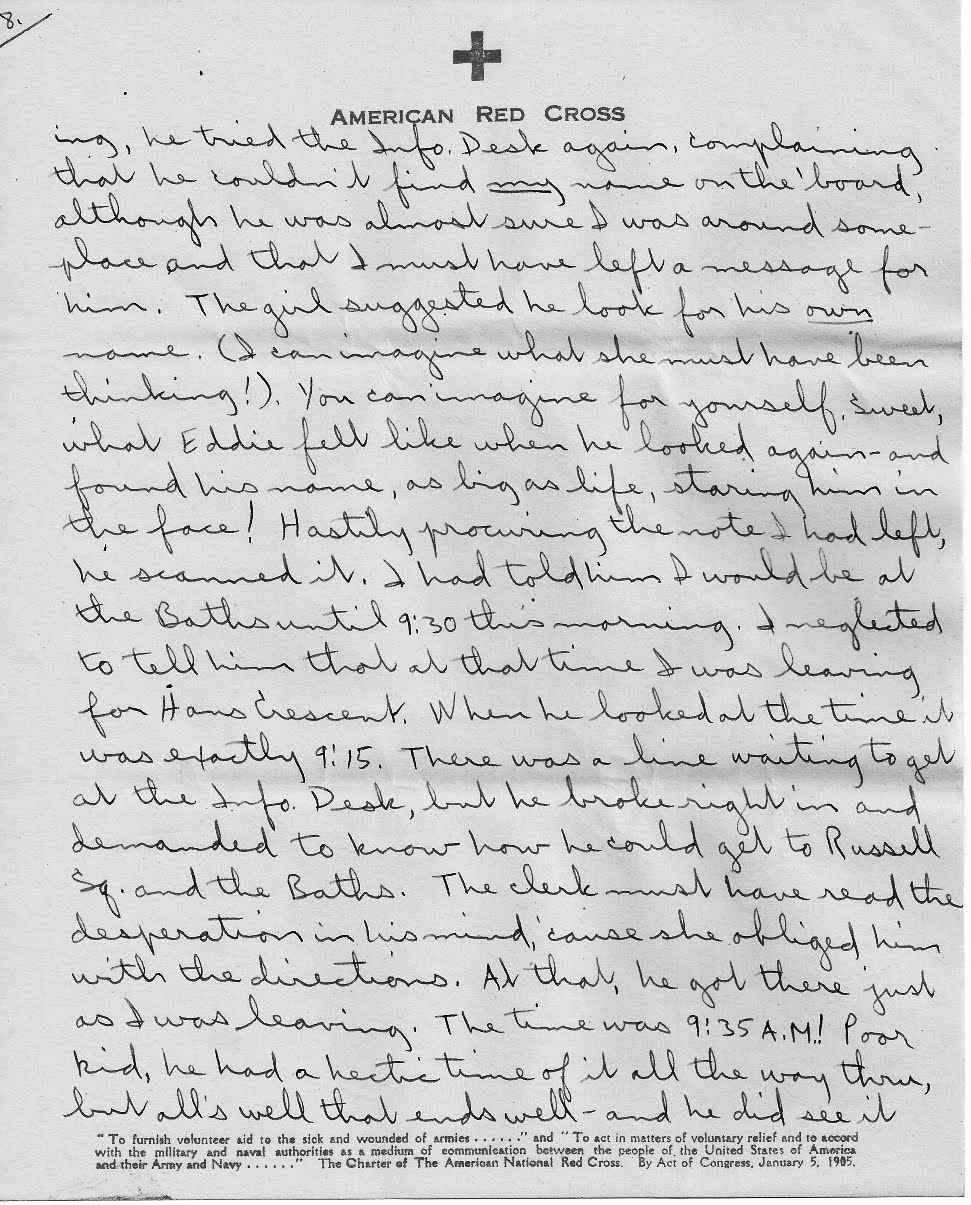 8.
AMERICAN RED CROSS
ing, he tried the Info. Desk again, complaining
that he couldn't find my name on the board,
although he was almost sure I was around some-
place and that I must have left a message for
him. The girl suggested he look for his own
name. (I can imagine what she must have been
thinking!). You can imagine for yourself, Sweet,
what Eddie felt like when he looked again - and
found his name, as big as life, staring him in
the face! Hastily procuring the note I had left,
he scanned it. I had told him I would be at
the Baths until 9:30 this morning. I neglected
to tell him that at that time I was leaving
for Hans Crescent. When he looked at the time it
was exactly 9:15. There was a line waiting to get
at the Info. Desk, but he broke right in and
demanded to know how he could get to Russell
Sq. and the Baths. The clerk must have read the
desperation in his mind, 'cause she obliged him
with the directions. At that, he got there just
as I was leaving. The time was 9:35 A.M.! Poor
kid, he had a hectic time of it all the way thru,
but all's well that ends well - and he did see it
"To furnish volunteer aid to the sick and wounded of armies ......" and "To act in matters of voluntary relief and to accord
with the military and naval authorities as a medium of communication between the people of the United States of America
and their Army and Navy ......" The Charter of The American National Red Cross. By Act of Congress, January 5, 1905.